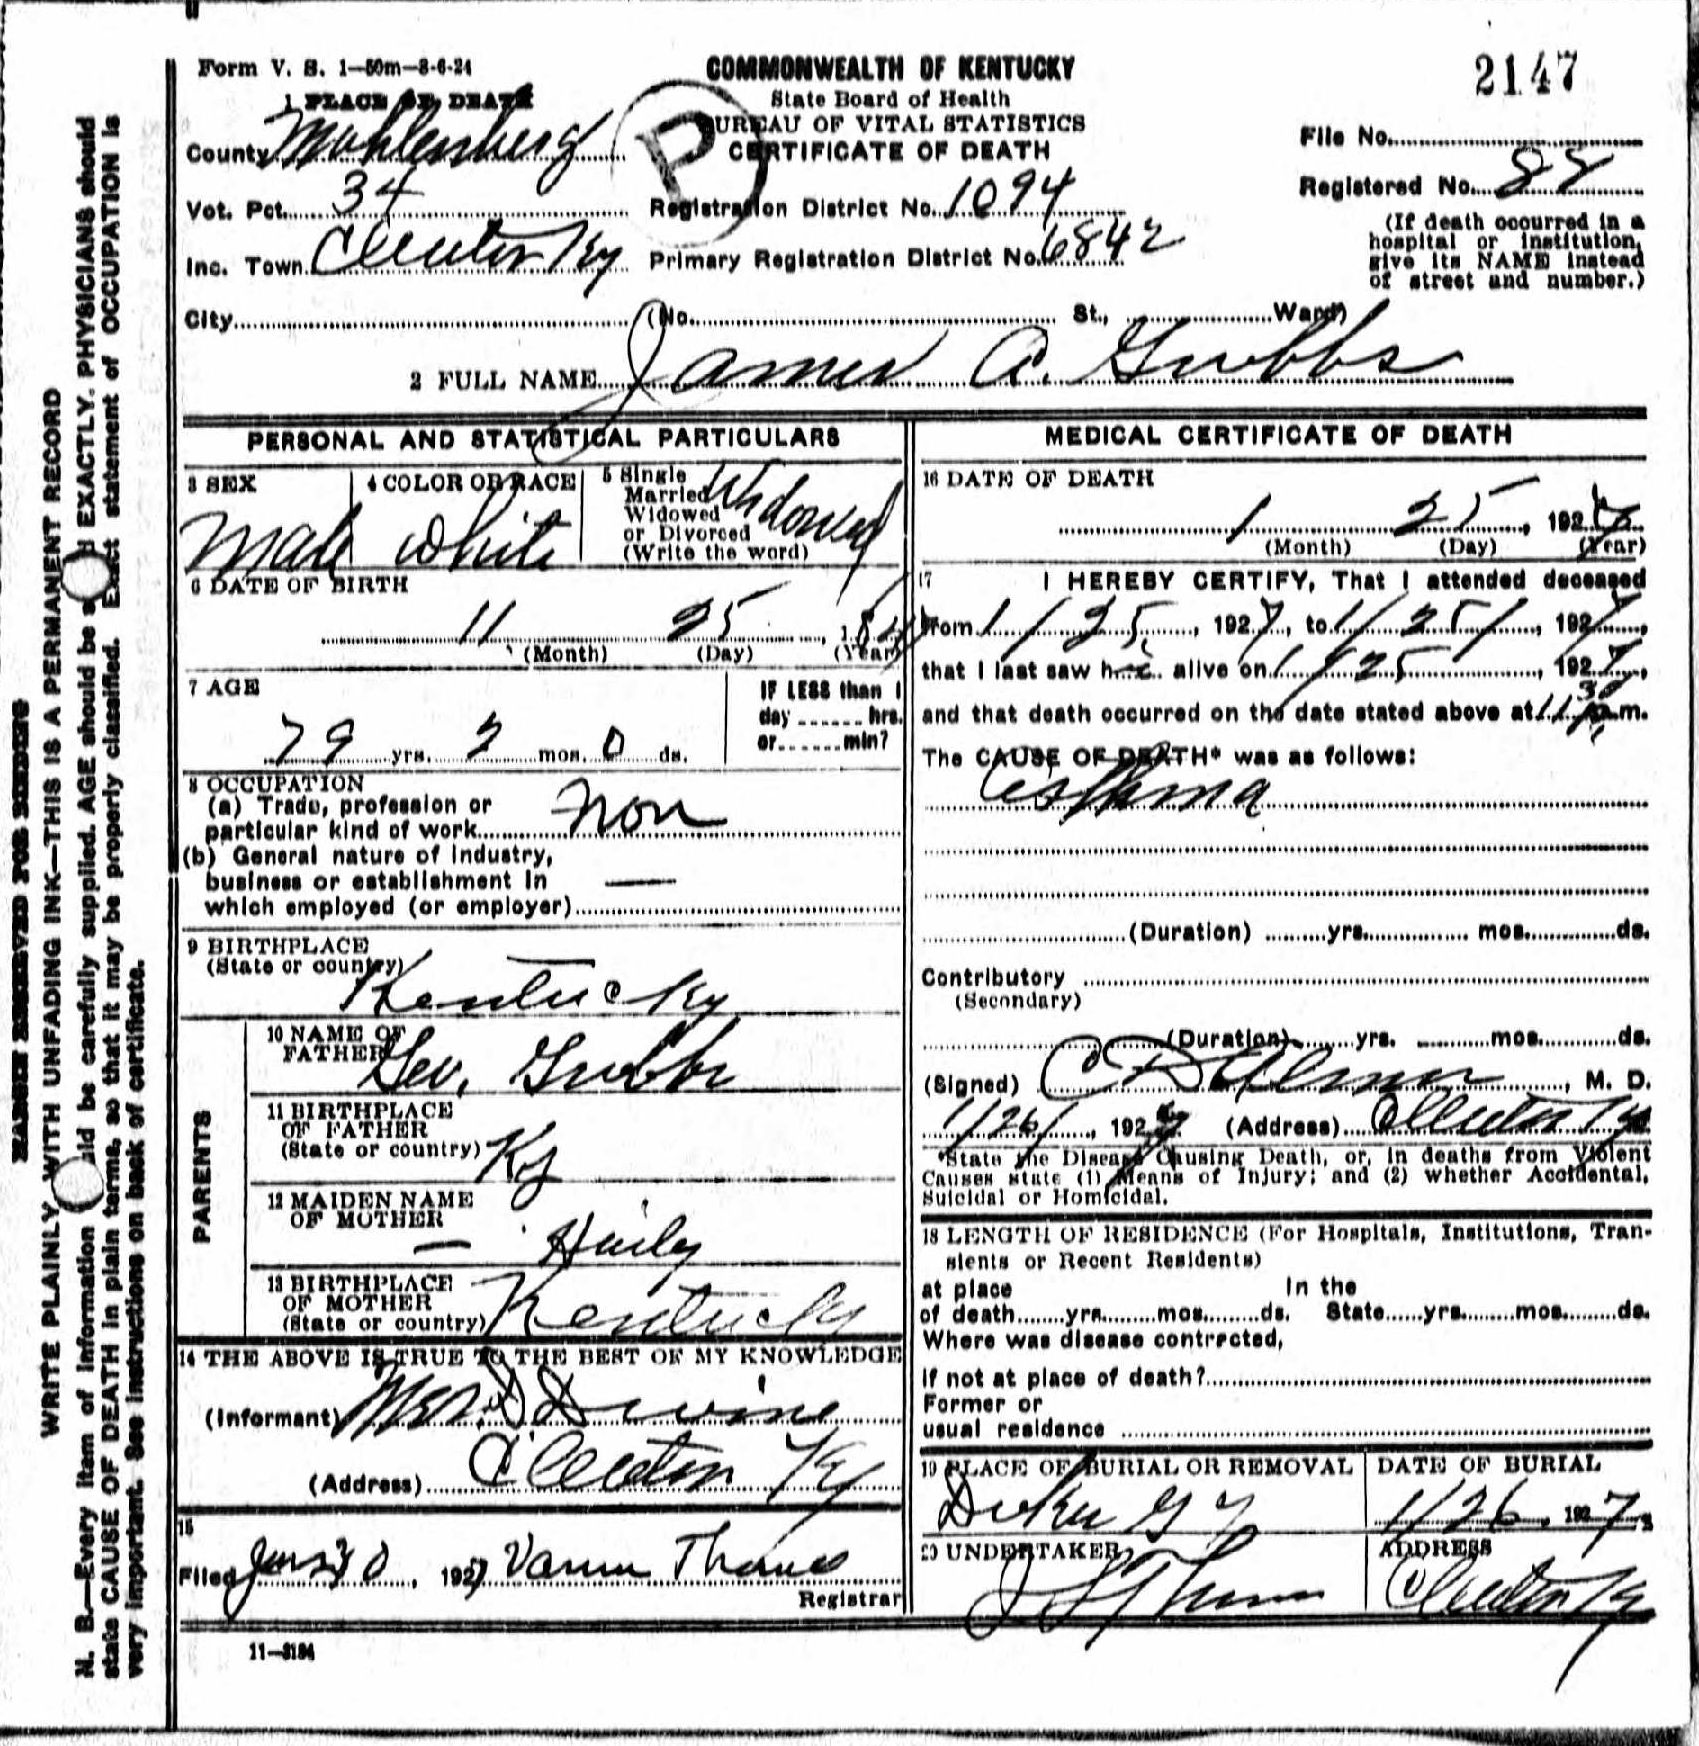 Form V. S. 1—50m—8-6-24
COMMONWEALTH OF KENTUCKY
2147
1 PLACE OF DEATH
State Board of Health
BUREAU OF VITAL STATISTICS
CERTIFICATE OF DEATH
P
County Muhlenberg
File No.
Registered No. 88
Vot. Pct. 34
Registration District No. 1094
Inc. Town Cleaton Ky
Primary Registration District No. 6842
(If death occurred in a
hospital or institution,
give its NAME instead
of street and number.)
City
(No. St., Ward)
2 FULL NAME James A. Grubbs
PERSONAL AND STATISTICAL PARTICULARS
3 SEX
Male
4 COLOR OR RACE
White
5 Single
Married
Widowed
or Divorced
(Write the word)
Widowed
6 DATE OF BIRTH
11 25, 184
(Month) (Day) (Year)
7 AGE
79 yrs. 2 mos. 0 ds.
IF LESS than 1
day hrs.
or min?
8 OCCUPATION
(a) Trade, profession or
particular kind of work non
(b) General nature of industry,
business or establishment in
which employed (or employer) —
9 BIRTHPLACE
(State or country)
Kentucky
PARENTS
10 NAME OF
FATHER Geo. Grubbs
11 BIRTHPLACE
OF FATHER
(State or country) Ky
12 MAIDEN NAME
OF MOTHER
—
13 BIRTHPLACE
OF MOTHER
(State or country) Kentucky
14 THE ABOVE IS TRUE TO THE BEST OF MY KNOWLEDGE
(Informant) Mrs. D Devine
(Address) Cleaton Ky
15
Filed Jan 30, 1927
Registrar
11—3184
MEDICAL CERTIFICATE OF DEATH
16 DATE OF DEATH
1 25, 1927
(Month) (Day) (Year)
17 I HEREBY CERTIFY, That I attended deceased
from 1/25, 1927, to 1/25/, 1927,
that I last saw h alive on 1/25, 1927,
and that death occurred on the date stated above at 11 30 p.m.
The CAUSE OF DEATH* was as follows:
Asthma
(Duration) yrs. mos. ds.
Contributory
(Secondary)
(Duration) yrs. mos. ds.
(Signed) M. D.
1/26/, 1927 (Address) Cleaton Ky
*State the Disease Causing Death, or, in deaths from Violent
Causes state (1) Means of Injury; and (2) whether Accidental,
Suicidal or Homicidal.
18 LENGTH OF RESIDENCE (For Hospitals, Institutions, Tran-
sients or Recent Residents)
at place In the
of death yrs. mos. ds. State yrs. mos. ds.
Where was disease contrrcted,
If not at place of death?
Former or
usual residence
19 PLACE OF BURIAL OR REMOVAL
DATE OF BURIAL
1/26, 1927
20 UNDERTAKER
ADDRESS
Cleaton Ky
MARGIN RESERVED FOR BINDING
WRITE PLAINLY, WITH UNFADING INK—THIS IS A PERMANENT RECORD
N. B.—Every item of information should be carefully supplied. AGE should be stated EXACTLY. PHYSICIANS should
state CAUSE OF DEATH in plain terms, so that it may be properly classified. Exact statement of OCCUPATION is
very important. See instructions on back of certificate.